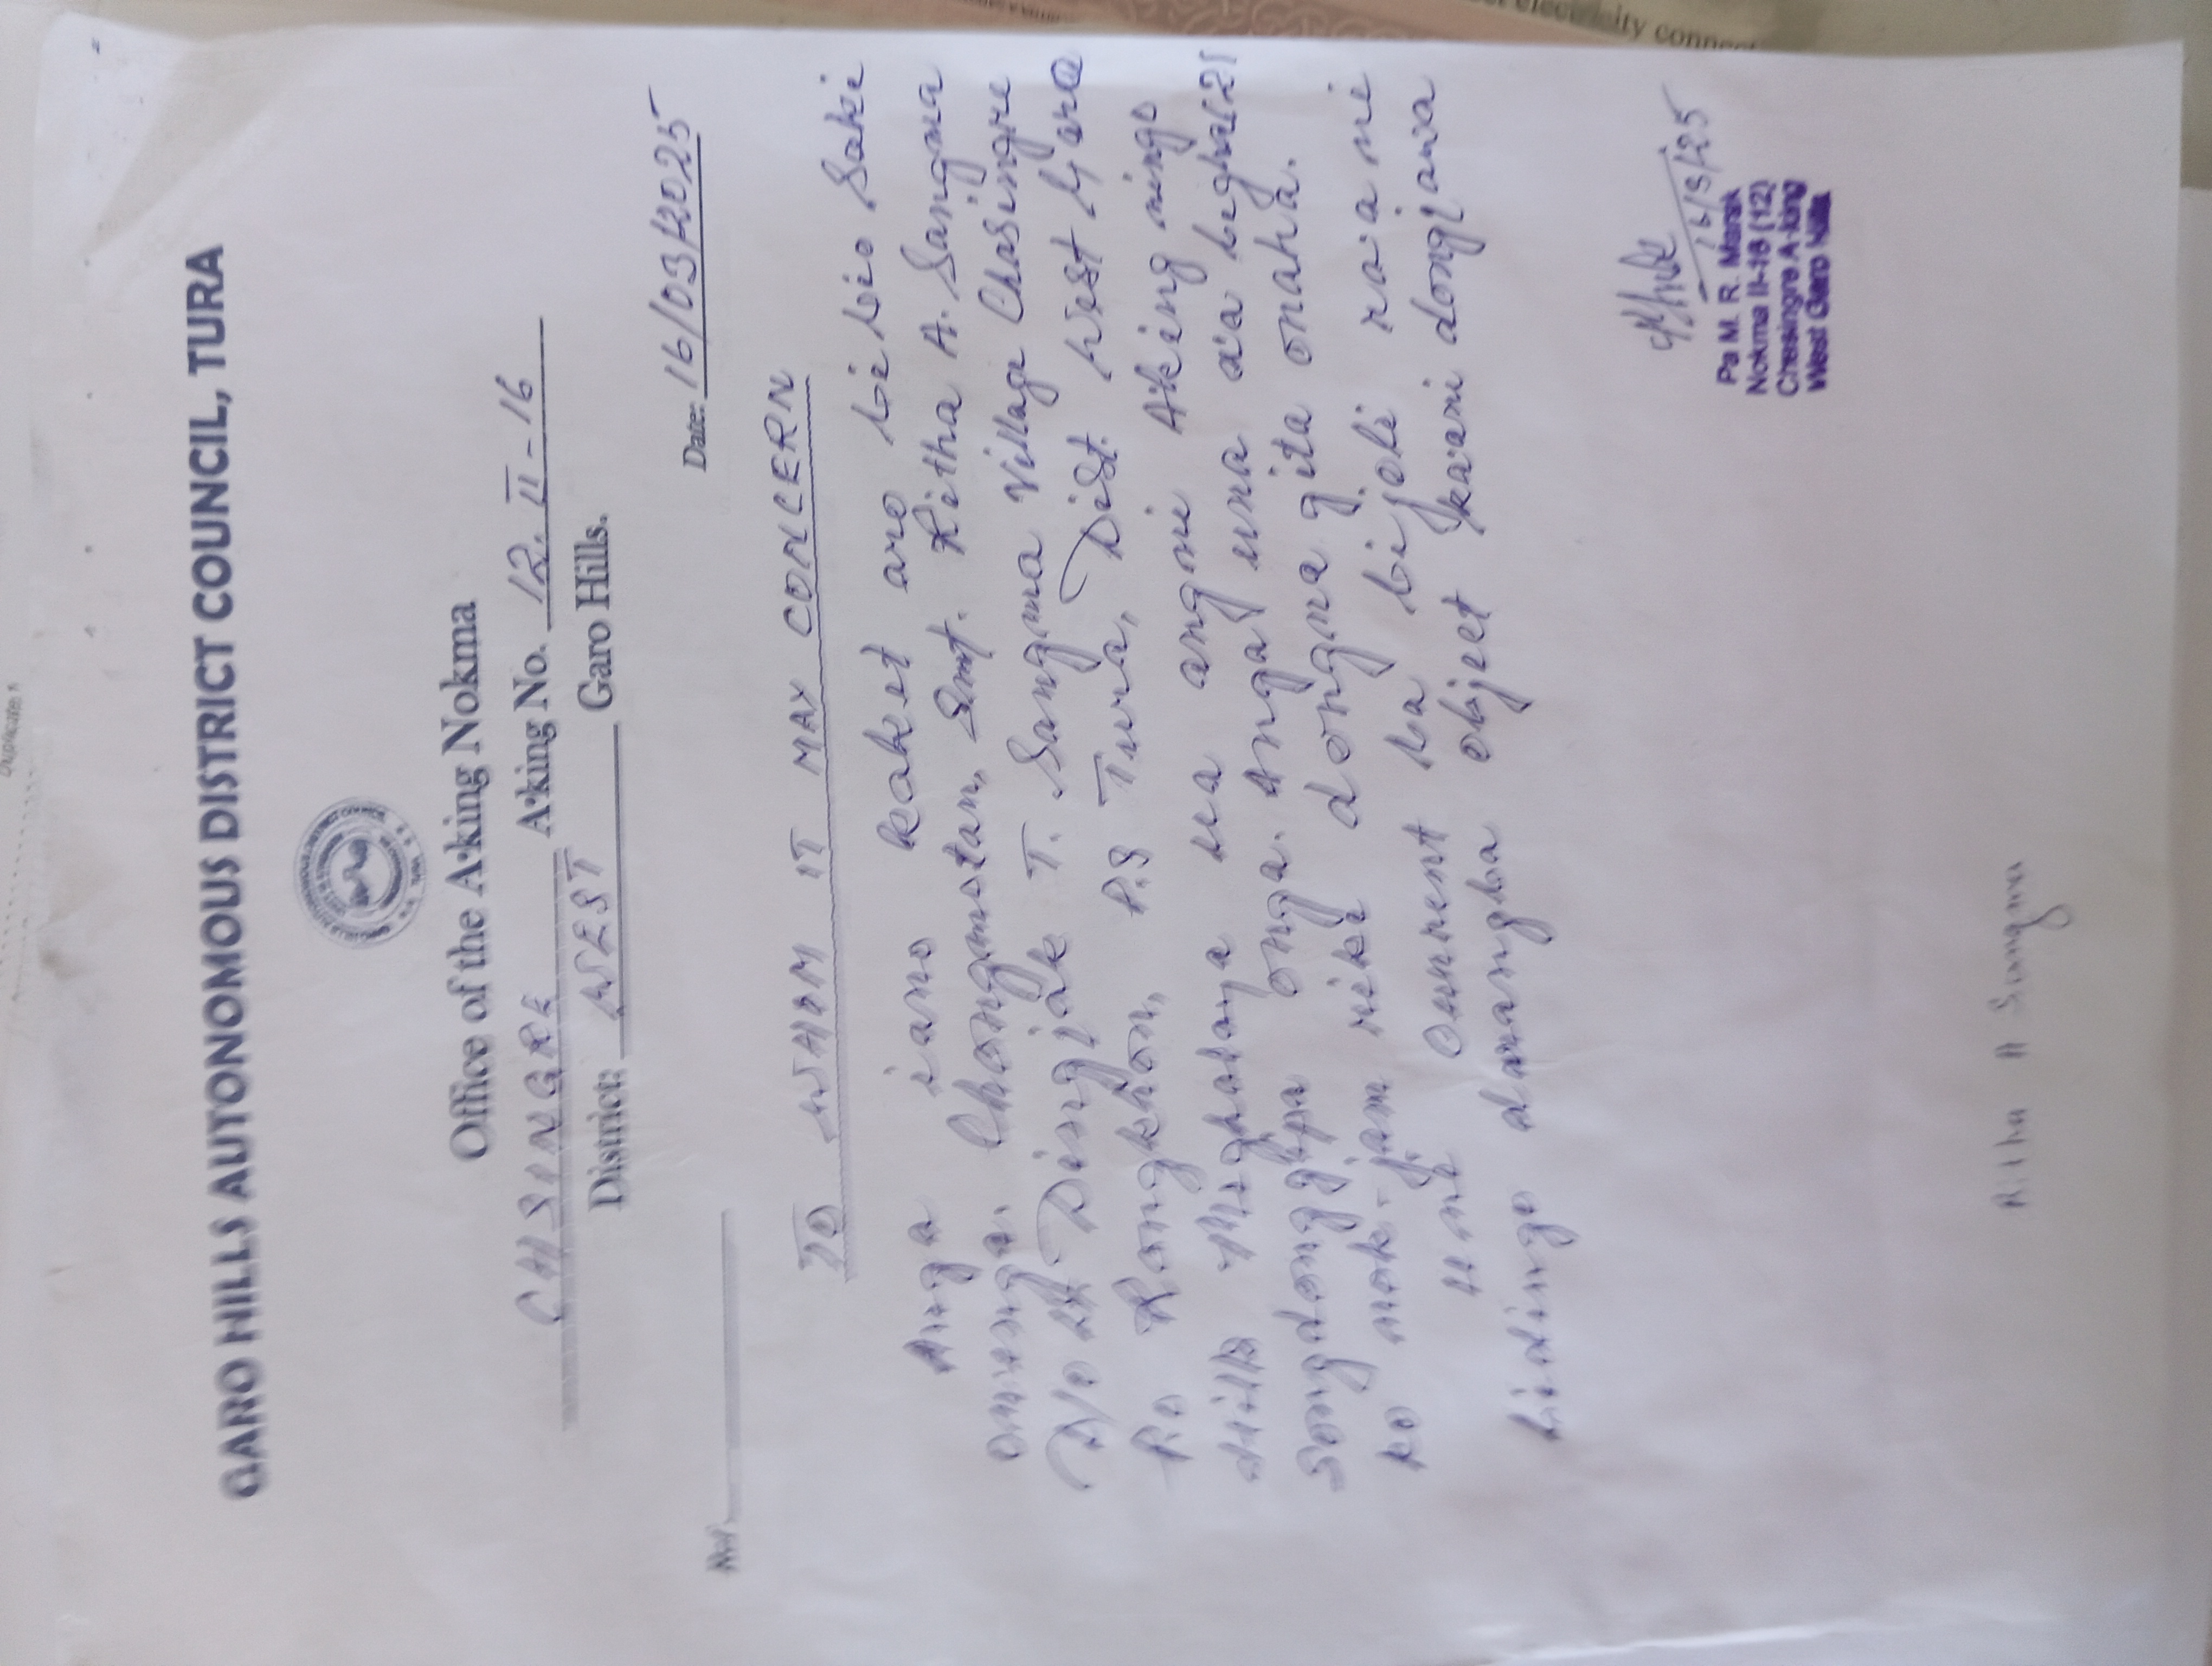 GARO HILLS AUTONOMOUS DISTRICT COUNCIL, TURA
Office of the A·king Nokma
CHSINGRE A·king No. 12. II-16
District: WEST Garo Hills.
Date: 16/03/2025
TO WHOM IT MAY CONCERN
Anga iano kaket aro bibio Saki
ongenga. Chongmotan, Smt. Ritha A. Sangma
D/O Lt Dingjak T. Sangma Village Chasingre
P.O Rongkhon, P.S Tura, Dist. West Garo
Hills Meghalaya ua angni A'king ningo
Songdonggipa onga. Anga una a'a begha(2)
ko nok-jam riki dongna gita onaha.
Uni current ba bijoli ra'a ni
bidingo damangba objeet ka'ani dongjawa
16/3/25
Pa M. R. Marak
Nokma II-16 (12)
Chasingre A·king
West Garo Hills
Ritha A Sangma
electricity connect